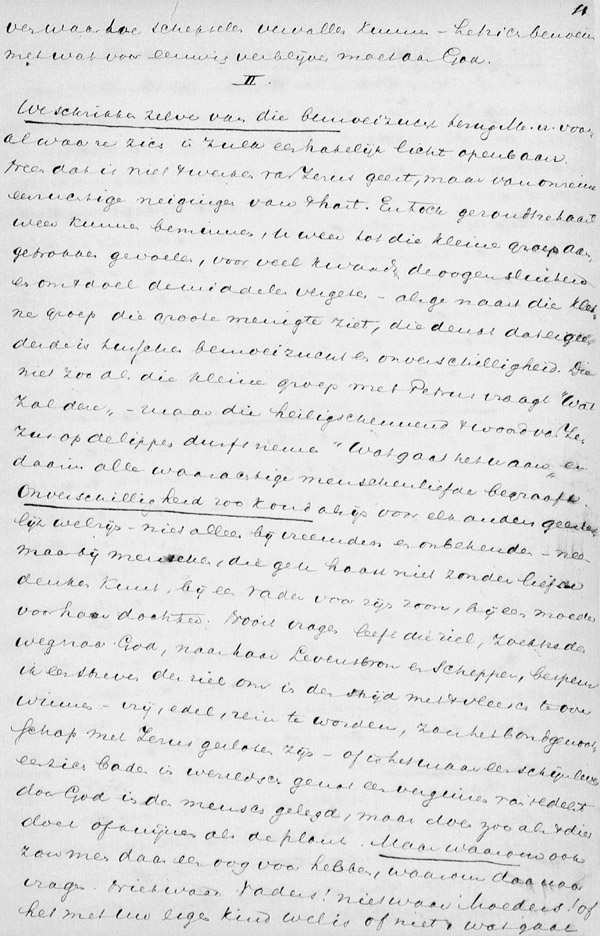 11
verwaarloosde schepselen vervallen kunnen – het zich bemoeien
met wat voor eeuwig verblijven moet aan God.
II.
We schrikken zelve van die bemoeizucht terug M. n. voor
al waar ze zich in zulk een hatelijk licht openbaart.
Neen dat is niet 't werken van Jezus geest, maar van onreine
eerzuchtige neigingen van 't hart. En toch
weer kunnen beminnen, u weer tot die kleine groep aan
getrokken gevoelen, voor veel kwaads de oogen sluitend
en om 't doel de middelen vergeten – als ge naast die klei
ne groep die groote menigte ziet, die denkt dat er geen
derde is tusschen bemoeizucht en onverschilligheid. Die
niet zoo als die kleine groep met Petrus vraagt "Wat
zal deze" – maar die heiligschennend 't woord van Je
zus op de lippen durft nemen "Wat gaat het u aan" en
daarin alle waarachtige menschenliefde begraaft.
Onverschilligheid zoo koud als ijs voor elk anders geeste
lijk welzijn – niet alleen bij vreemden en onbekenden – nee
maar bij menschen, die ge u haast niet zonder liefde
denken kunt, bij een vader voor zijn zoon, bij een moeder
voor haar dochter. Nooit vragen leeft die ziel, zoekt ze den
weg naar God, naar haar Levensbron en Schepper, bespeur
ik een streven der ziel om in den strijd met 't vleesch te over
winnen – vrij, edel, rein te worden, zou het bondgenoot
schap met Jezus gesloten zijn – of is het maar een schijnleven
een zich baden in wereldsch genot een vergeten van 't edelst
door God in den mensch gelegd, maar doen zoo als 't dier
doet of anders als de plant. Maar waarom ook
zou men daar een oog voor hebben, waarom daar naar
vragen. Niet waar Vaders! niet waar Moeders! of
het met uw eigen kind wel is of niet, wat gaat